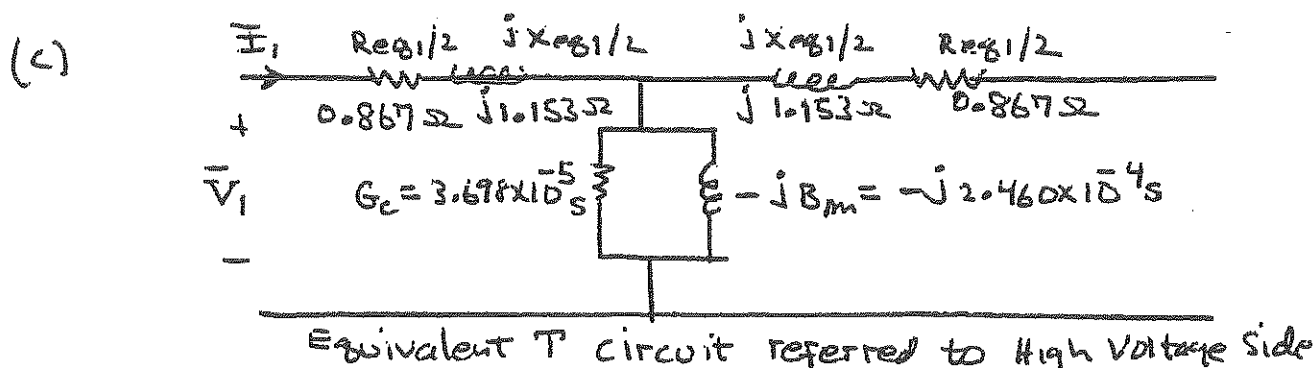 (c)
Ī₁ Req1/2 jXeq1/2 jXeq1/2 Req1/2
0.867Ω j1.153Ω j1.153Ω 0.867Ω
+
V̄₁ Gc = 3.698x10⁻⁵ S -jBm = -j2.460x10⁻⁴ S
-
Equivalent T circuit referred to High Voltage Side